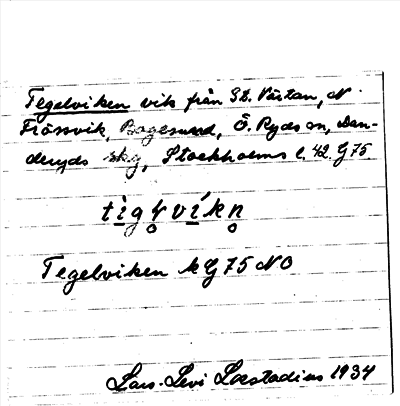 Tegelviken vik från St. Värtan, N.
Frösvik, Bogesund, Ö. Ryds sn, Dan-
deryds skg, Stockholms l. 42. G 75.
tigvíkn
Tegelviken k G 75 NO
Lars-Levi Læstadius 1934